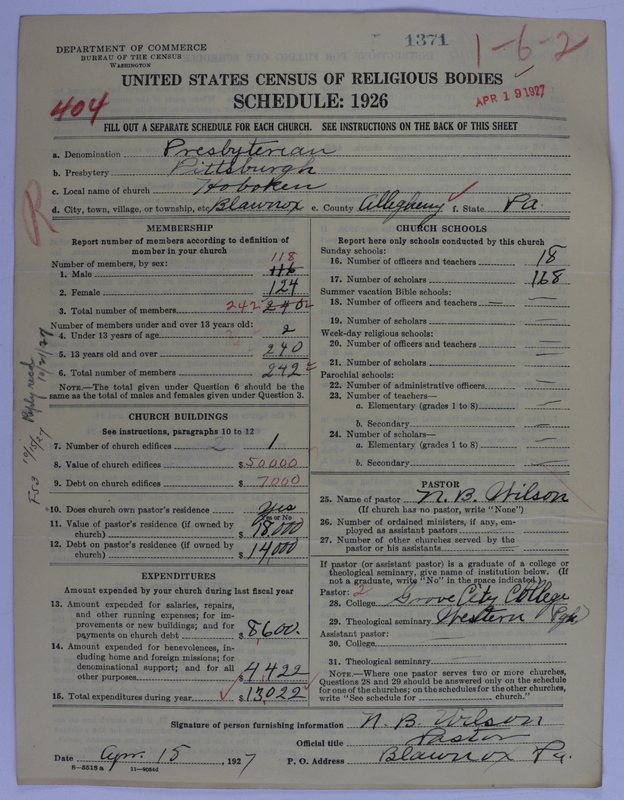 1371
1-6-2
DEPARTMENT OF COMMERCE
BUREAU OF THE CENSUS
WASHINGTON
UNITED STATES CENSUS OF RELIGIOUS BODIES
SCHEDULE: 1926
404
APR 19 1927
FILL OUT A SEPARATE SCHEDULE FOR EACH CHURCH. SEE INSTRUCTIONS ON THE BACK OF THIS SHEET
a. Denomination Presbyterian
b. Presbytery Pittsburgh
c. Local name of church Hoboken
d. City, town, village, or township, etc Blawnox e. County Allegheny f. State Pa.
R
MEMBERSHIP
Report number of members according to definition of
member in your church
Number of members, by sex: 118
1. Male 116
2. Female 124
3. Total number of members 242 240
Number of members under and over 13 years old:
4. Under 13 years of age 2
5. 13 years old and over 240
6. Total number of members 242
NOTE.—The total given under Question 6 should be the
same as the total of males and females given under Question 3.
CHURCH BUILDINGS
See instructions, paragraphs 10 to 12
7. Number of church edifices 2 1
8. Value of church edifices $ 50000
9. Debt on church edifices $ 7000
*10. Does church own pastor's residence Yes
Yes or No
11. Value of pastor's residence (if owned by
church) $ 18,000
12. Debt on pastor's residence (if owned by
church) $ 14,000
EXPENDITURES
Amount expended by your church during last fiscal year
13. Amount expended for salaries, repairs,
and other running expenses; for im-
provements or new buildings; and for
payments on church debt $ 8,600.
14. Amount expended for benevolences, in-
cluding home and foreign missions; for
denominational support; and for all
other purposes $ 4,422
15. Total expenditures during year $ 13,022
Reply recd 10/21/27
10/5/27
F53
CHURCH SCHOOLS
Report here only schools conducted by this church
Sunday schools:
16. Number of officers and teachers 18
17. Number of scholars 168
Summer vacation Bible schools:
18. Number of officers and teachers —
19. Number of scholars —
Week-day religious schools:
20. Number of officers and teachers —
21. Number of scholars —
Parochial schools:
22. Number of administrative officers —
23. Number of teachers—
a. Elementary (grades 1 to 8) —
b. Secondary —
24. Number of scholars—
a. Elementary (grades 1 to 8) —
b. Secondary —
PASTOR
25. Name of pastor N. B. Wilson
(If church has no pastor, write "None")
26. Number of ordained ministers, if any, em-
ployed as assistant pastors
27. Number of other churches served by the
pastor or his assistants
If pastor (or assistant pastor) is a graduate of a college or
theological seminary, give name of institution below. (If
not a graduate, write "No" in the space indicated.)
Pastor: 2
28. College Grove City College
29. Theological seminary Western (Pgh)
Assistant pastor:
30. College —
31. Theological seminary —
NOTE.—Where one pastor serves two or more churches,
Questions 28 and 29 should be answered only on the schedule
for one of the churches; on the schedules for the other churches,
write "See schedule for church."
Signature of person furnishing information N. B. Wilson
Official title Pastor
Date Apr. 15, 1927 P. O. Address Blawnox Pa.
8-5518a 11-9054d